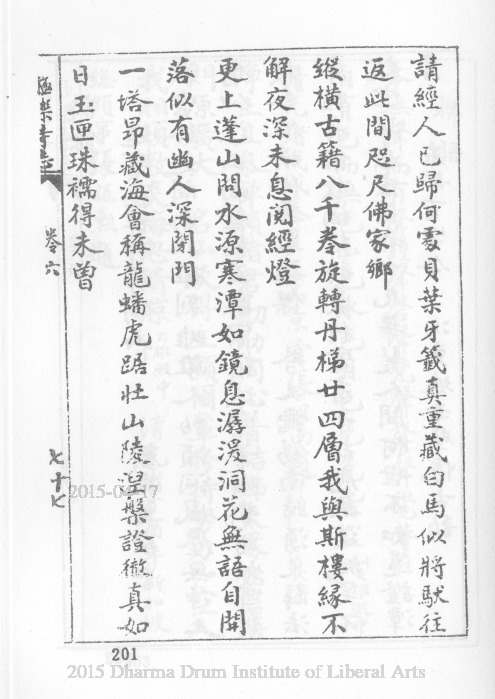 請經人已歸何處貝葉牙籤真重藏白馬似將馱往
返此間咫尺佛家鄉
縱橫古籍八千卷旋轉丹梯廿四層我與斯樓緣不
解夜深未息閱經燈
更上蓬山問水源寒潭如鏡息潺湲洞花無語自開
落似有幽人深閉門
一塔昂藏海會稱龍蟠虎踞壯山陵涅槃證徹真如
日玉匣珠襦得未曾
極樂寺志
卷六
七十七
2015-04-17
201
2015 Dharma Drum Institute of Liberal Arts